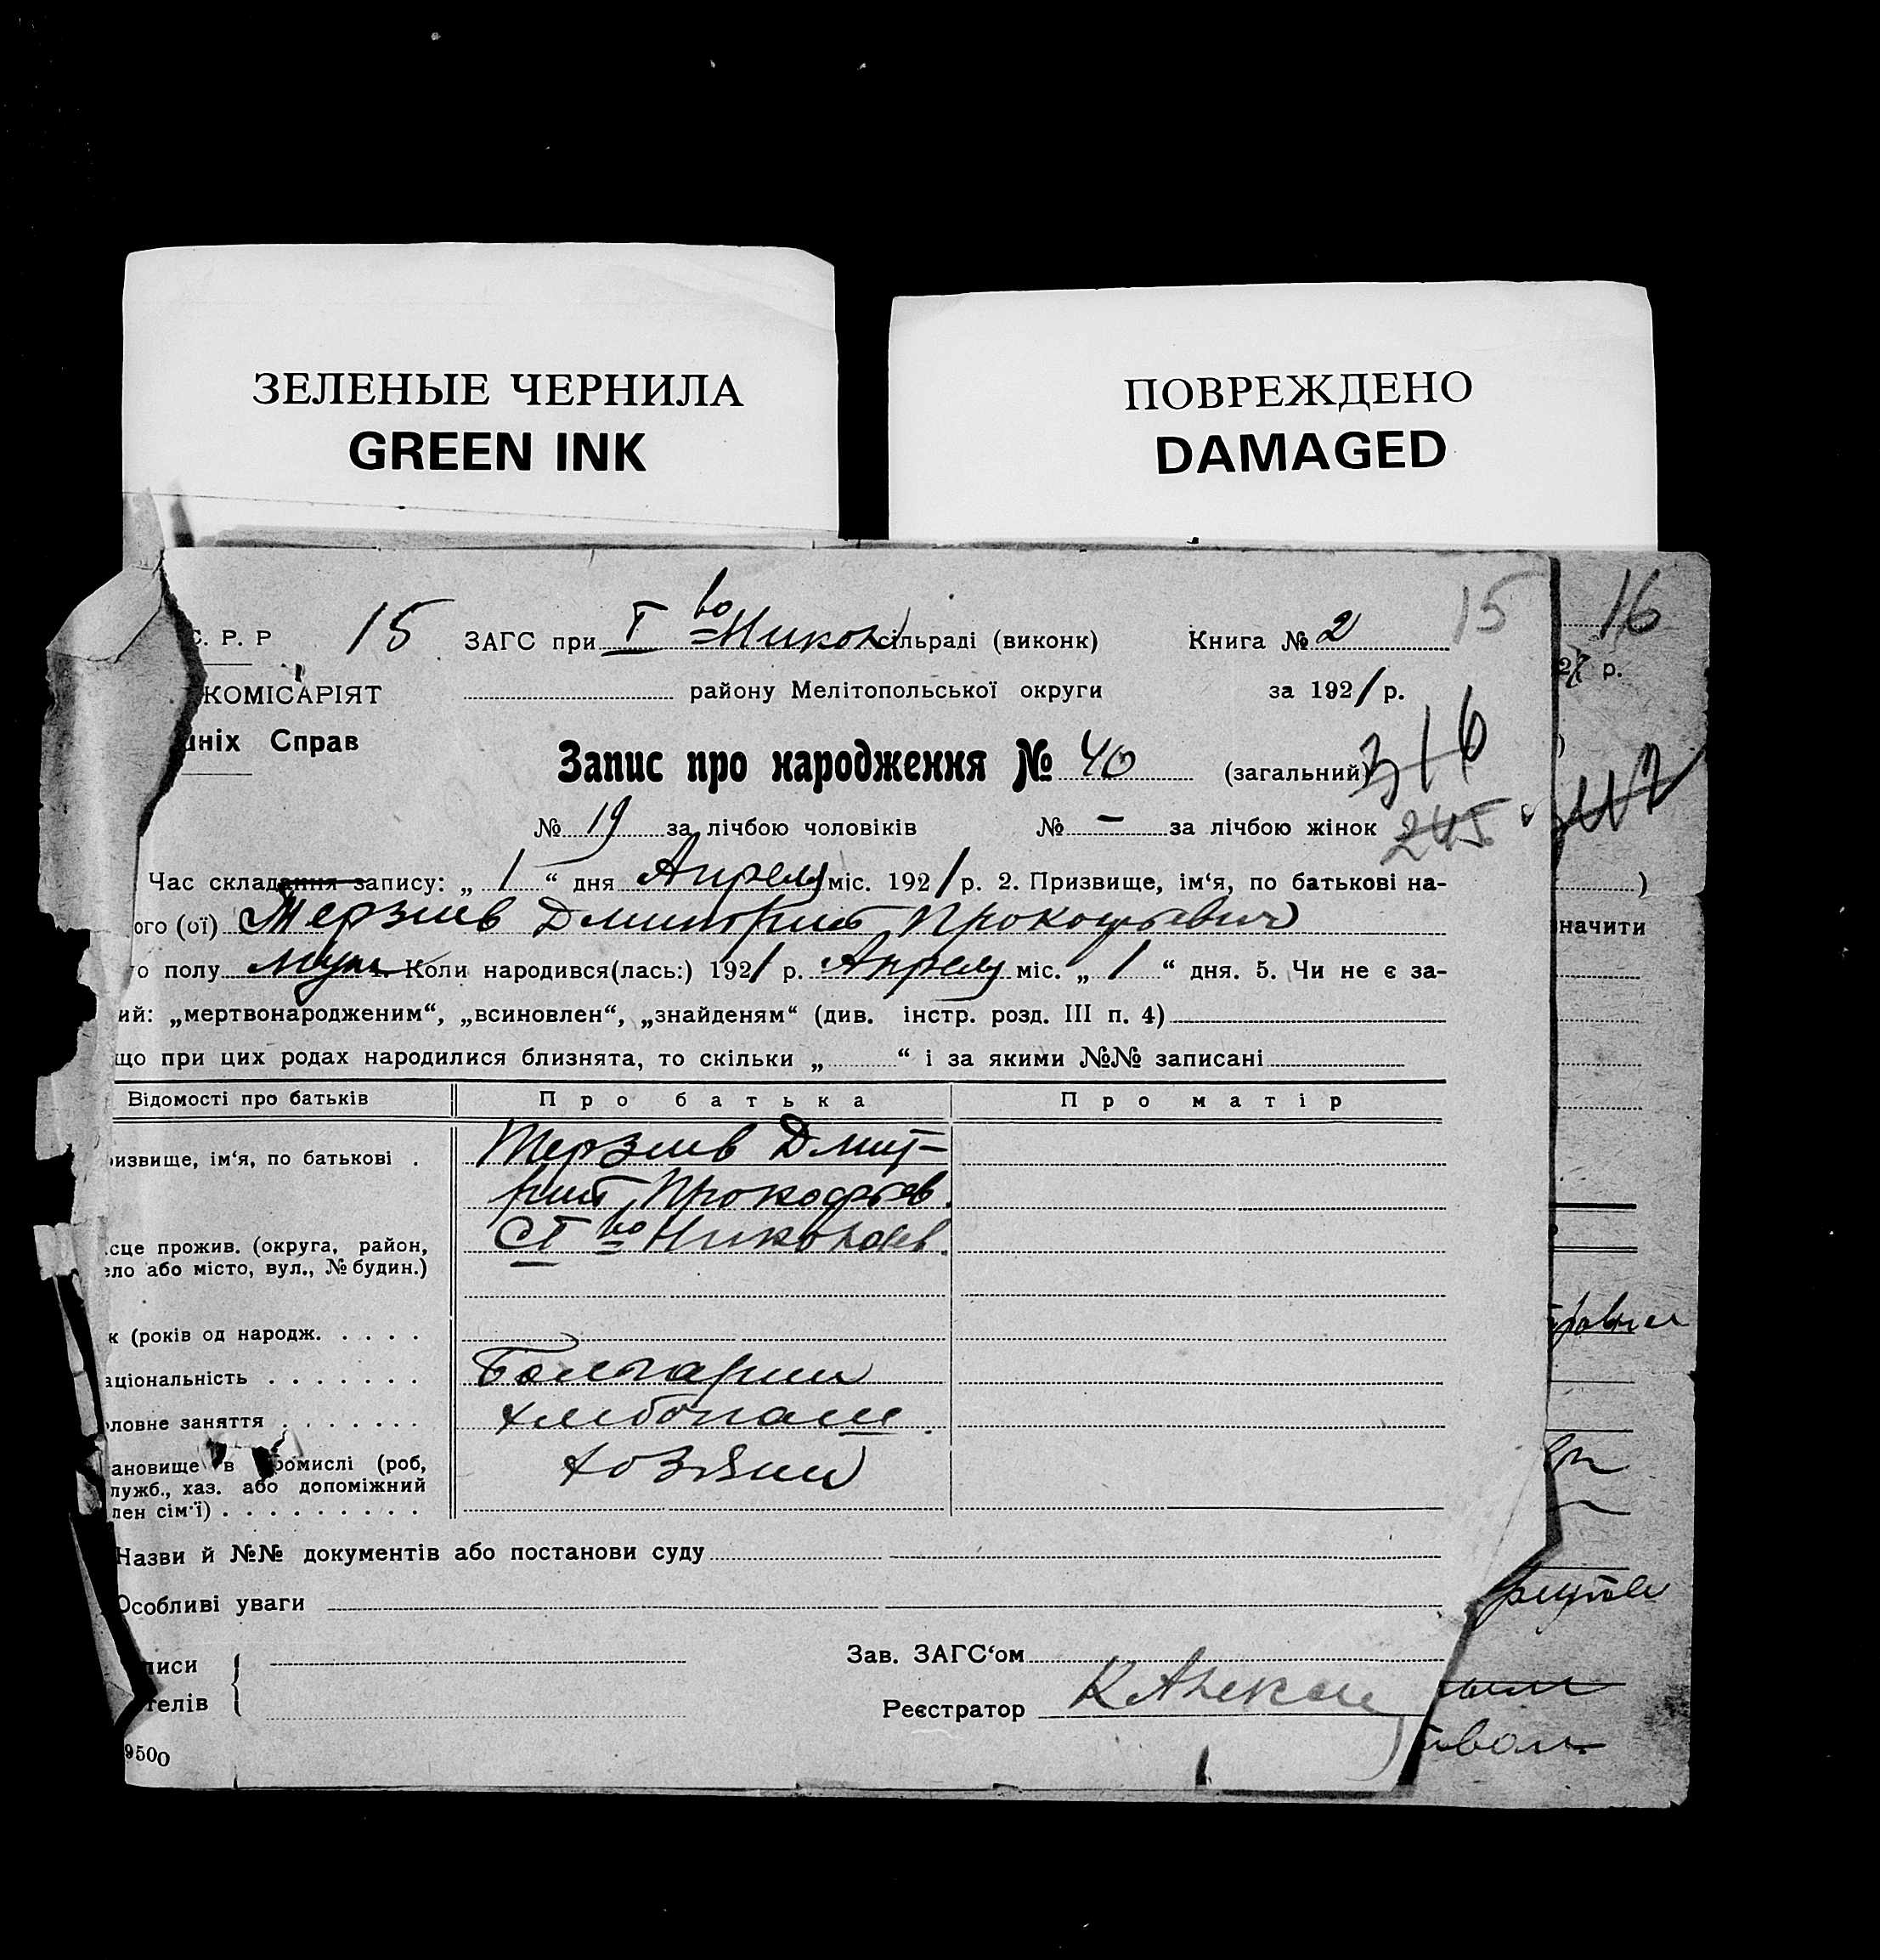 ЗЕЛЕНЫЕ ЧЕРНИЛА
GREEN INK
ПОВРЕЖДЕНО
DAMAGED
16
15
С. Р. Р 15 ЗАГС при I во Никол сільраді (виконк) Книга № 2
р.
КОМІСАРІЯТ району Мелітопольської округи за 1921 р.
ніх Справ
Запис про народження № 40 (загальний) 316
№ 19 за лічбою чоловіків № — за лічбою жінок 245
Час складання запису: „ 1 “ дня Апреля міс. 1921 р. 2. Призвище, ім‘я, по батькові на-
ого (ої) Терзиев Дмитрий Прокофьевич
начити
о полу муж. Коли народився(лась:) 1921 р. Апреля міс. „ 1 “ дня. 5. Чи не є за-
ий: „мертвонародженим“, „всиновлен“, „знайденям“ (див. інстр. розд. III п. 4)
що при цих родах народилися близнята, то скільки „ “ і за якими №№ записані
Відомості про батьків Про батька Про матір
ризвище, ім‘я, по батькові . Терзиев Дмит-
рий Прокофьев.
сце прожив. (округа, район, СI во Николаев.
ело або місто, вул., № будин.)
к (років од народж. . . . .
аціональність . . . . . . . Болгарин
ловне заняття . . . . . . . хлебопаш.
ановище в ромислі (роб, хозяин
лужб., хаз. або допоміжний
лен сім‘ї) . . . . . . . . .
Назви й №№ документів або постанови суду
Особливі уваги
писи Зав. ЗАГС‘ом
телів Реєстратор
9500